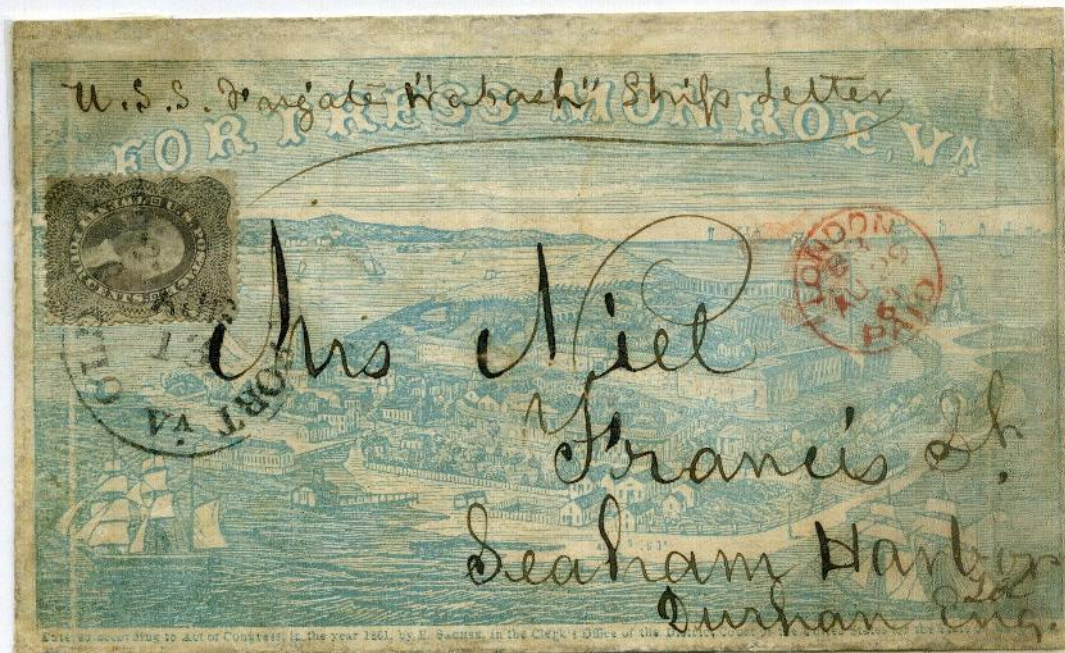 U.S.S. Frigate "Wabash" Ship Letter
FORTRESS MONROE, VA
CENTS
LONDON
PAID
OLD PORT VA
Mrs Niel
Francis St.
Seaham Harbor
Durhan Eng.
Entered according to Act of Congress, in the year 1861, by E. Sachse, in the Clerk's Office of the District Court of the United States